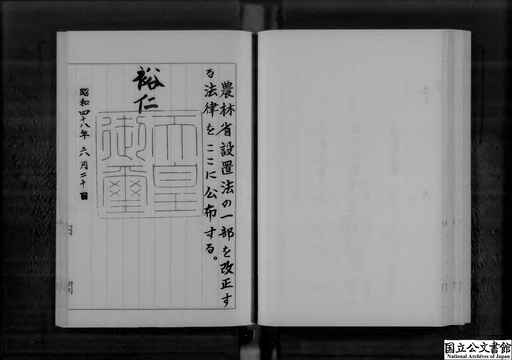 農林省設置法の一部を改正す
る法律をここに公布する。
裕仁
天皇
御璽
昭和四十八年六月二十日
国立公文書館
National Archives of Japan